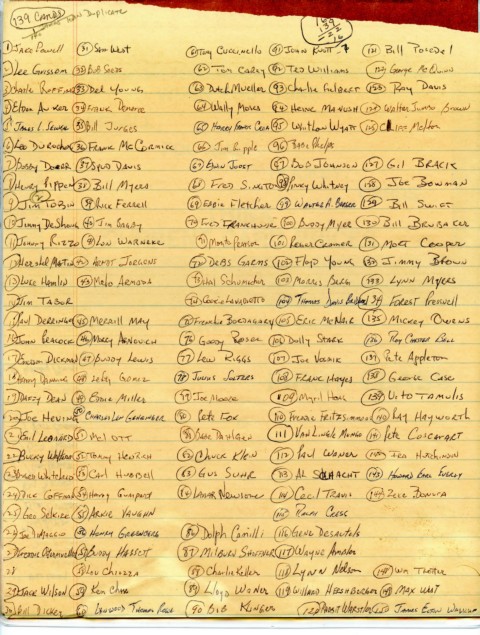 139 CARDS
Duplicates
139
1 Jake Powell
2 Lee Grissom
3 Charlie Ruffing
4 Eldon Auker
5 James L. Sewell
6 Leo Durocher
7 Bobby Doerr
8 Henry Pippen
9 Jim Tobin
10 Jimmy DeShong
11 Johnny Rizzo
12 Hershel Martin
13 Luke Hamlin
14 Jim Tabor
15 Paul Derringer
16 John Peacock
17 Emerson Dickman
18 Harry Danning
19 Dizzy Dean
20 Joe Heving
21 Emil Leonard
22 Bucky Walters
23 Burgess Whitehead
24 Dick Coffman
25 Geo Selkirk
26 Joe DiMaggio
27 Freddie Ostermueller
28
29 Jack Wilson
30 Bill Dickey
31 Sam West
32 Bob Seeds
33 Del Young
34 Frank Demaree
35 Bill Jurges
36 Frank McCormick
37 Spud Davis
38 Bill Myers
39 Rick Ferrell
40 Jim Bagby
41 Lon Warneke
42 Arndt Jorgens
43 Melo Almada
45 Merrill May
46 Morry Arnovich
47 Buddy Lewis
48 Lefty Gomez
49 Eddie Miller
50 Charles Len Gehringer
51 Mel Ott
52 Tommy Henrich
53 Carl Hubbell
54 Harry Gumpert
55 Arkie Vaughn
56 Henry Greenberg
57 Buddy Hassett
58 Lou Chiozza
59 Ken Chase
60 Linwood Thomas Rowe
61 Tony Cuccinello
62 Tom Carey
63 Dutch Mueller
64 Wally Moses
65 Harry Francis Craft
66 Jim Ripple
67 Eddie Joost
68 Fred Sington
69 Elbie Fletcher
70 Fred Frankhouse
71 Monte Pearson
72 Debs Garms
73 Hal Schumacher
74 Cookie Lavagetto
75 Frenchie Bordagaray
76 Goody Rosen
77 Lew Riggs
78 Julius Solters
79 Joe Moore
80 Pete Fox
81 Babe Dahlgren
82 Chuck Klein
83 Gus Suhr
84 Lamar Newsome
86 Dolph Camilli
87 Milburn Shoffner
88 Charlie Keller
89 Lloyd Waner
90 Bob Klinger
91 John Knott
92 Ted Williams
93 Charlie Gelbert
94 Heinie Manush
95 Whitlow Wyatt
96 Babe Phelps
97 Bob Johnson
98 Pinky Whitney
99 Walter A. Berger
100 Buddy Myer
101 Roger Cramer
102 Floyd Young
103 Morris Berg
104 Thomas David Bridges
105 Eric McNair
106 Dolly Stark
107 Joe Vosmik
108 Frank Hayes
109 Myril Hoag
110 Freddie Fitzsimmons
111 Van Lingle Mungo
112 Paul Waner
113 Al Schacht
114 Cecil Travis
115 Ralph Kress
116 Gene Desautels
117 Wayne Ambler
118 Lynn Nelson
119 Willard Hershberger
120 Rabbit Warstler
121 Bill Posedel
122 George McQuinn
123 Ray Davis
124 Walter Jumbo Brown
125 Cliff Melton
127 Gil Brack
128 Joe Bowman
129 Bill Swift
130 Bill Brubaker
131 Mort Cooper
132 Jimmy Brown
133 Lynn Myers
134 Forest Pressnell
135 Mickey Owens
136 Roy Chester Bell
137 Pete Appleton
138 George Case
139 Vito Tamulis
140 Ray Hayworth
141 Pete Coscarart
142 Ira Hutchinson
143 Howard Earl Averill
144 Zeke Bonura
148 Wm Tietje
149 Max West
150 James Elton Walkup